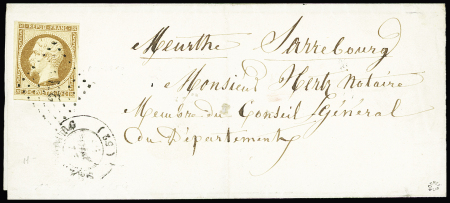 REPUB. FRANC.
Meurthe Sarrebourg
Monsieur Hertz Notaire
Membre du Conseil Général
du Département
(52)